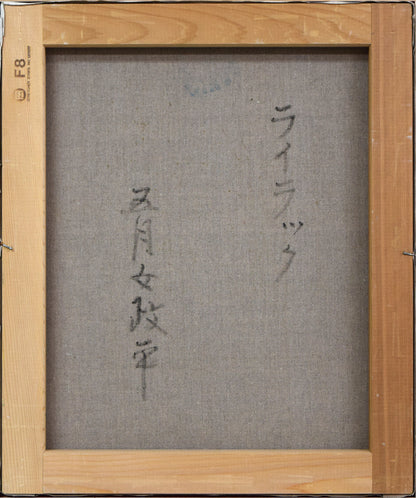 ライラック
五月女政平
F8